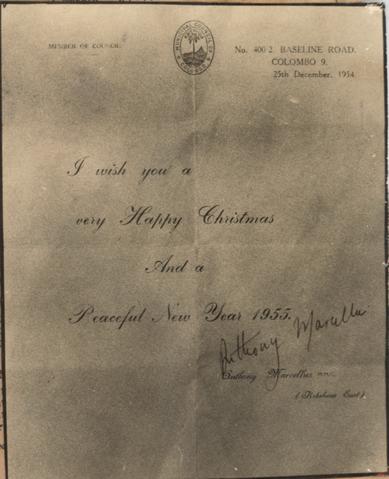 MEMBER OF COUNCIL
MUNICIPAL COUNCIL OF COLOMBO
No. 400/2, BASELINE ROAD,
COLOMBO 9.
25th December, 1954
I wish you a
very Happy Christmas
And a
Peaceful New Year 1955.
Anthony Marcellus
Anthony Marcellus M.M.C.